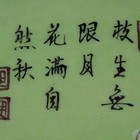 枝生無
限月
花滿自
然秋